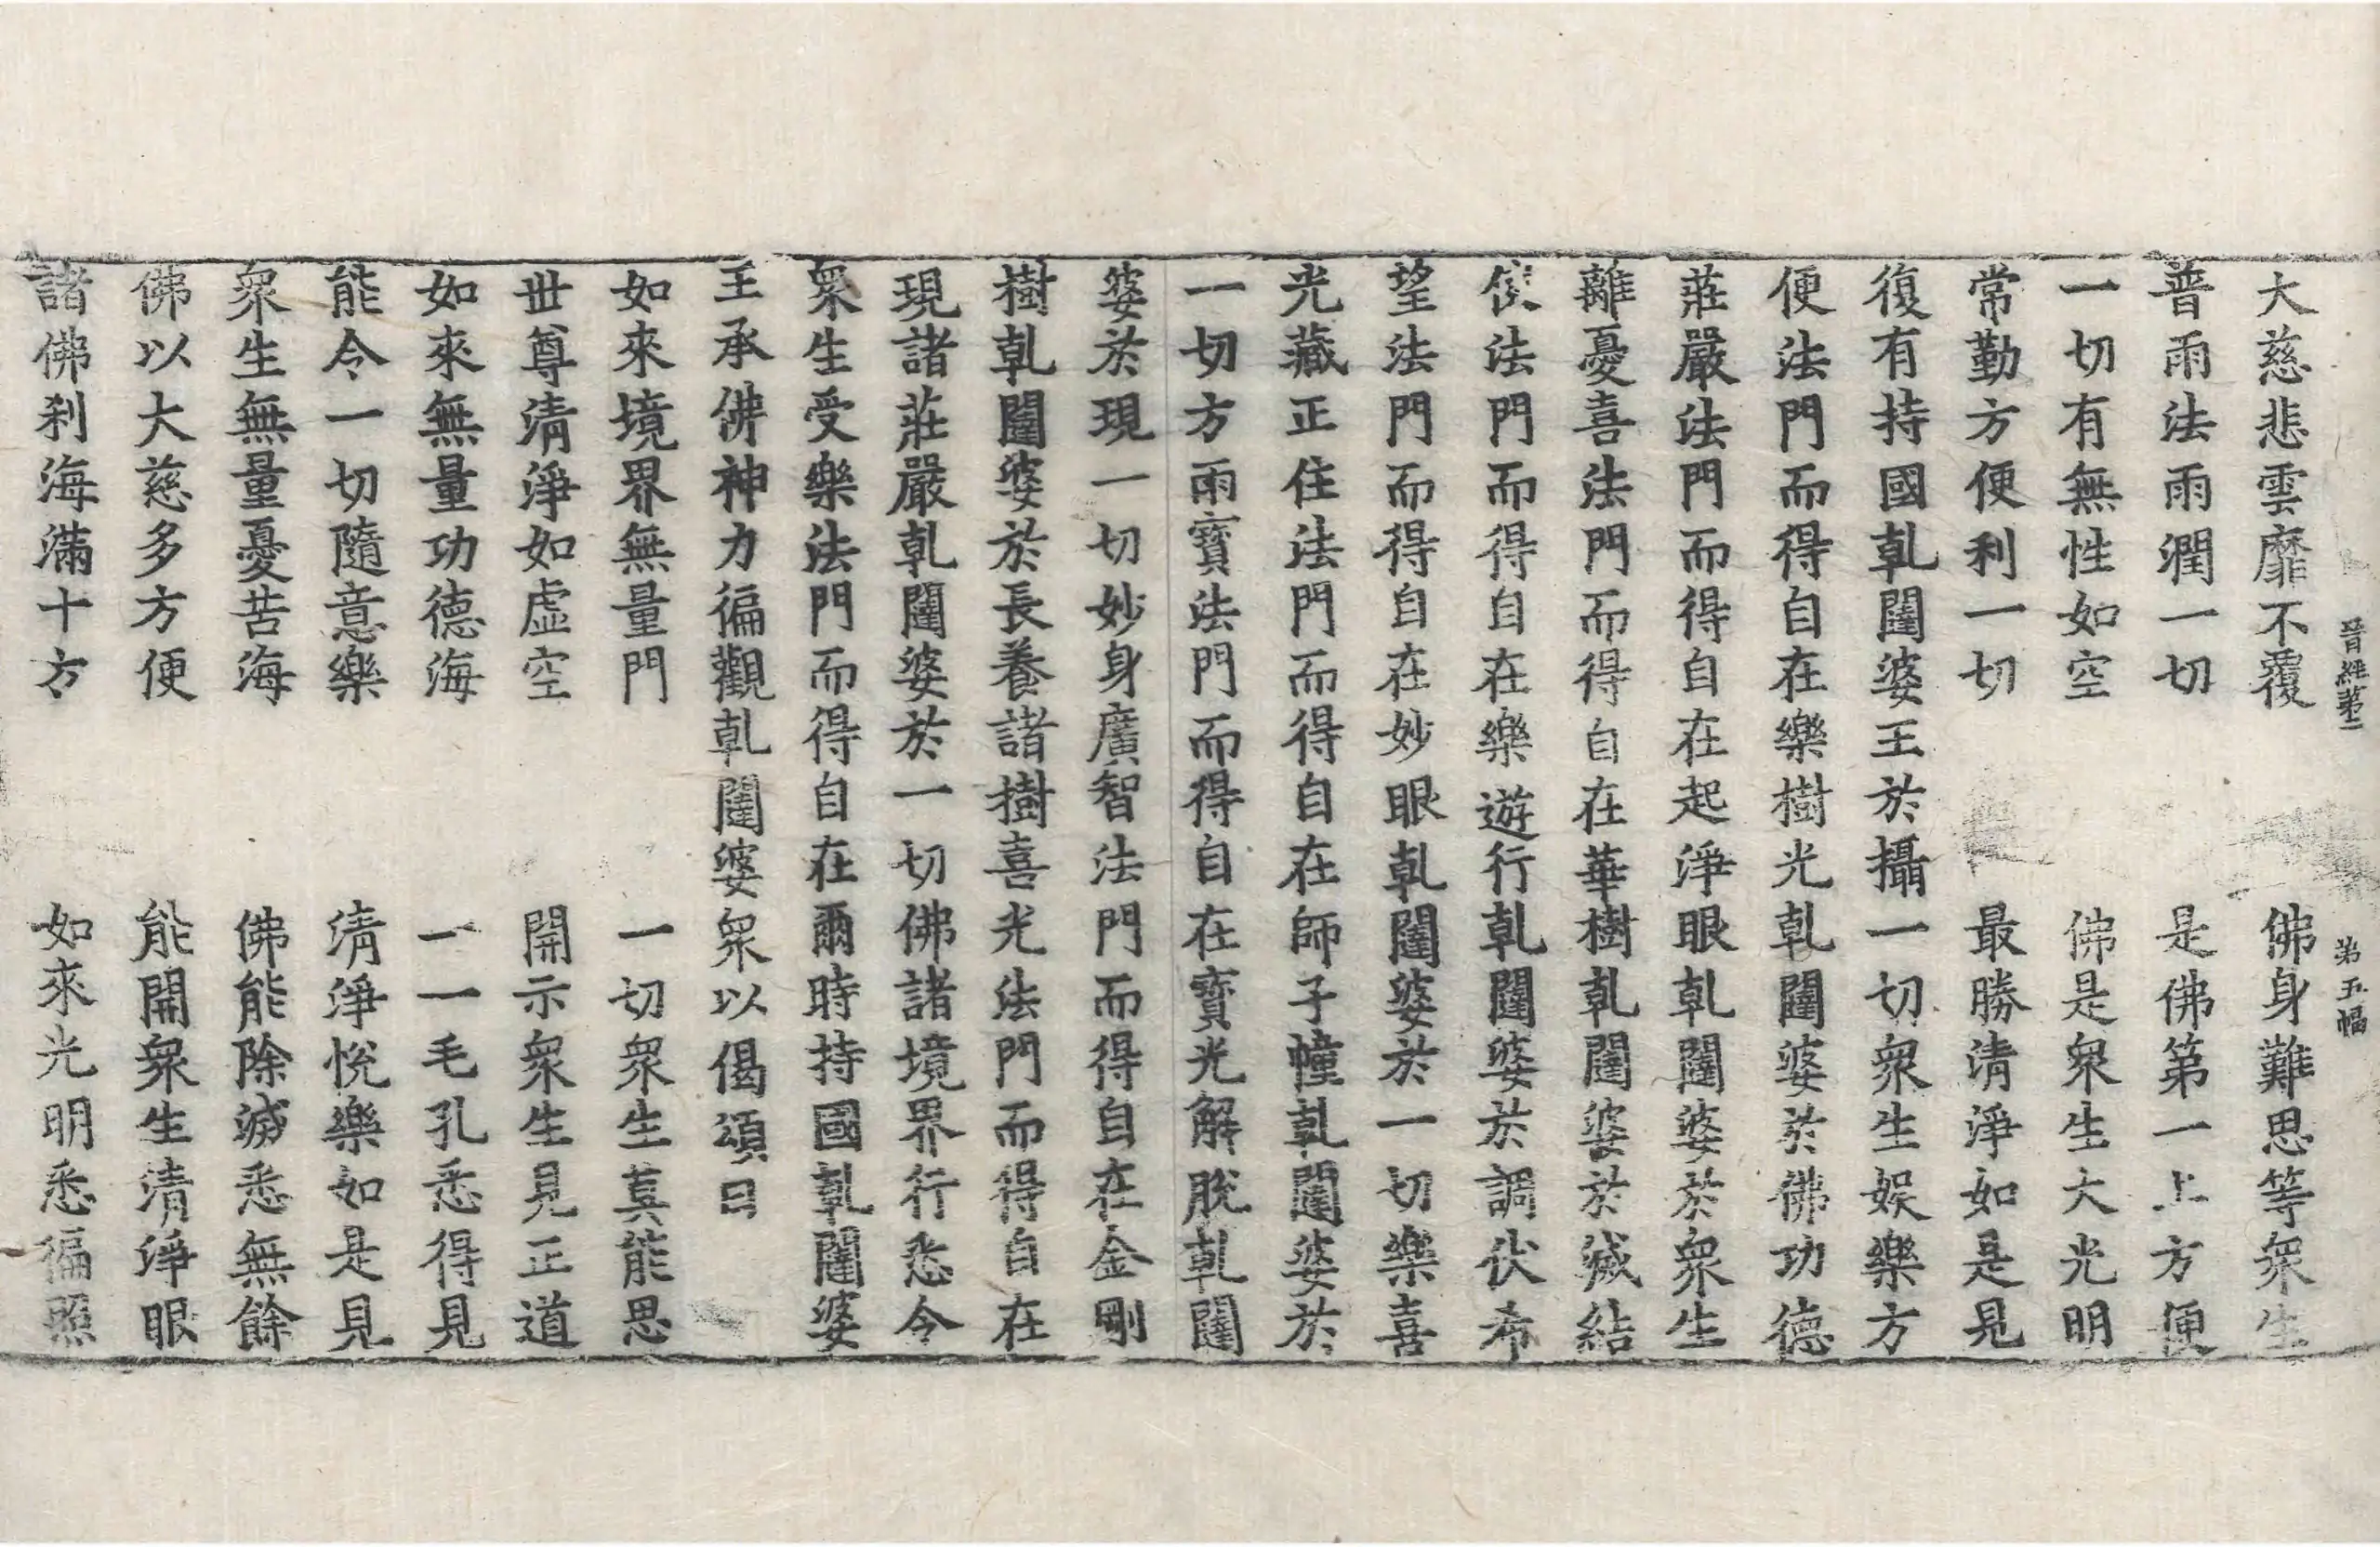 晉經第二 第五幅
大慈悲雲靡不覆 佛身難思等衆生
普雨法雨潤一切 是佛第一上方便
一切有無性如空 佛是衆生大光明
常勤方便利一切 最勝清淨如是見
復有持國乹闥婆王於攝一切衆生娛樂方
便法門而得自在樂樹光乹闥婆於佛功德
莊嚴法門而得自在起淨眼乹闥婆於衆生
離憂喜法門而得自在華樹乹闥婆於滅結
使法門而得自在樂遊行乹闥婆於調伏希
望法門而得自在妙眼乹闥婆於一切樂喜
光藏正住法門而得自在師子幢乹闥婆於
一切方雨寳法門而得自在寳光解脫乹闥
婆於現一切妙身廣智法門而得自在金剛
樹乹闥婆於長養諸樹喜光法門而得自在
現諸莊嚴乹闥婆於一切佛諸境界行悉令
衆生受樂法門而得自在爾時持國乹闥婆
王承佛神力徧觀乹闥婆衆以偈頌曰
如來境界無量門 一切衆生莫能思
世尊清淨如虛空 開示衆生見正道
如來無量功德海 一一毛孔悉得見
能令一切隨意樂 清淨悅樂如是見
衆生無量憂苦海 佛能除滅悉無餘
佛以大慈多方便 能開衆生清淨眼
諸佛刹海滿十方 如來光明悉徧照